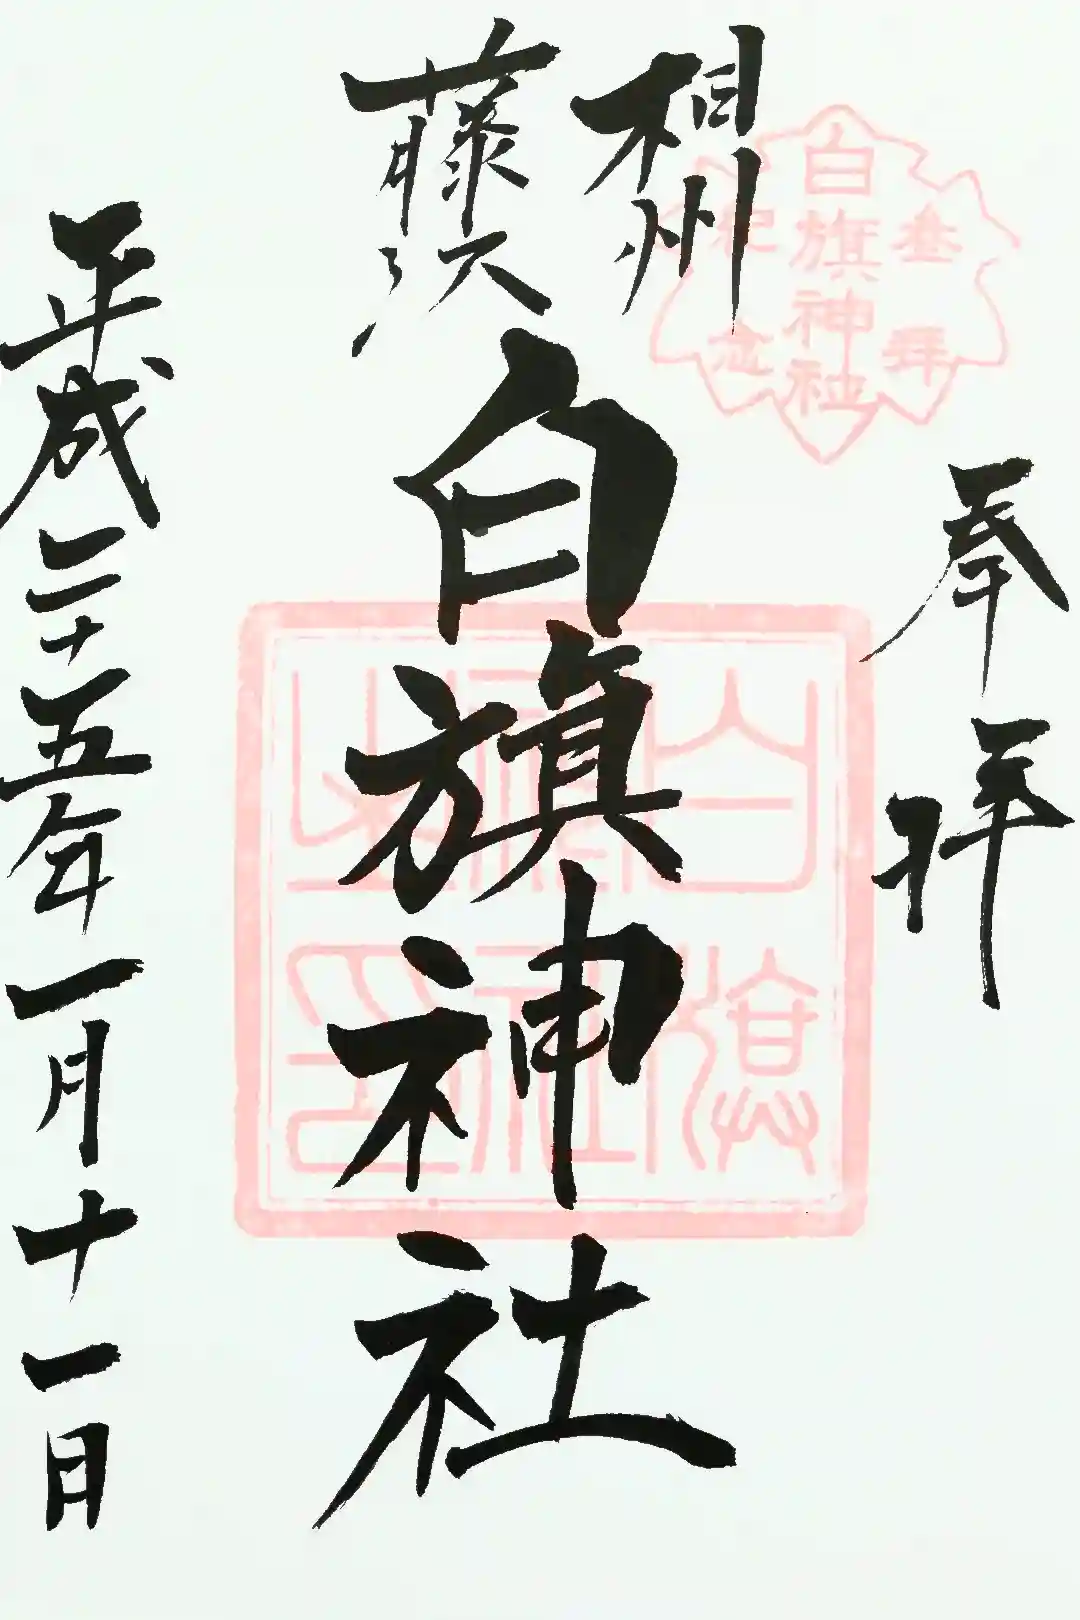 奉拝
参拝
白旗神社
記念
相州
藤沢
白旗神社
白旗
神社
之印
平成二十五年一月十一日